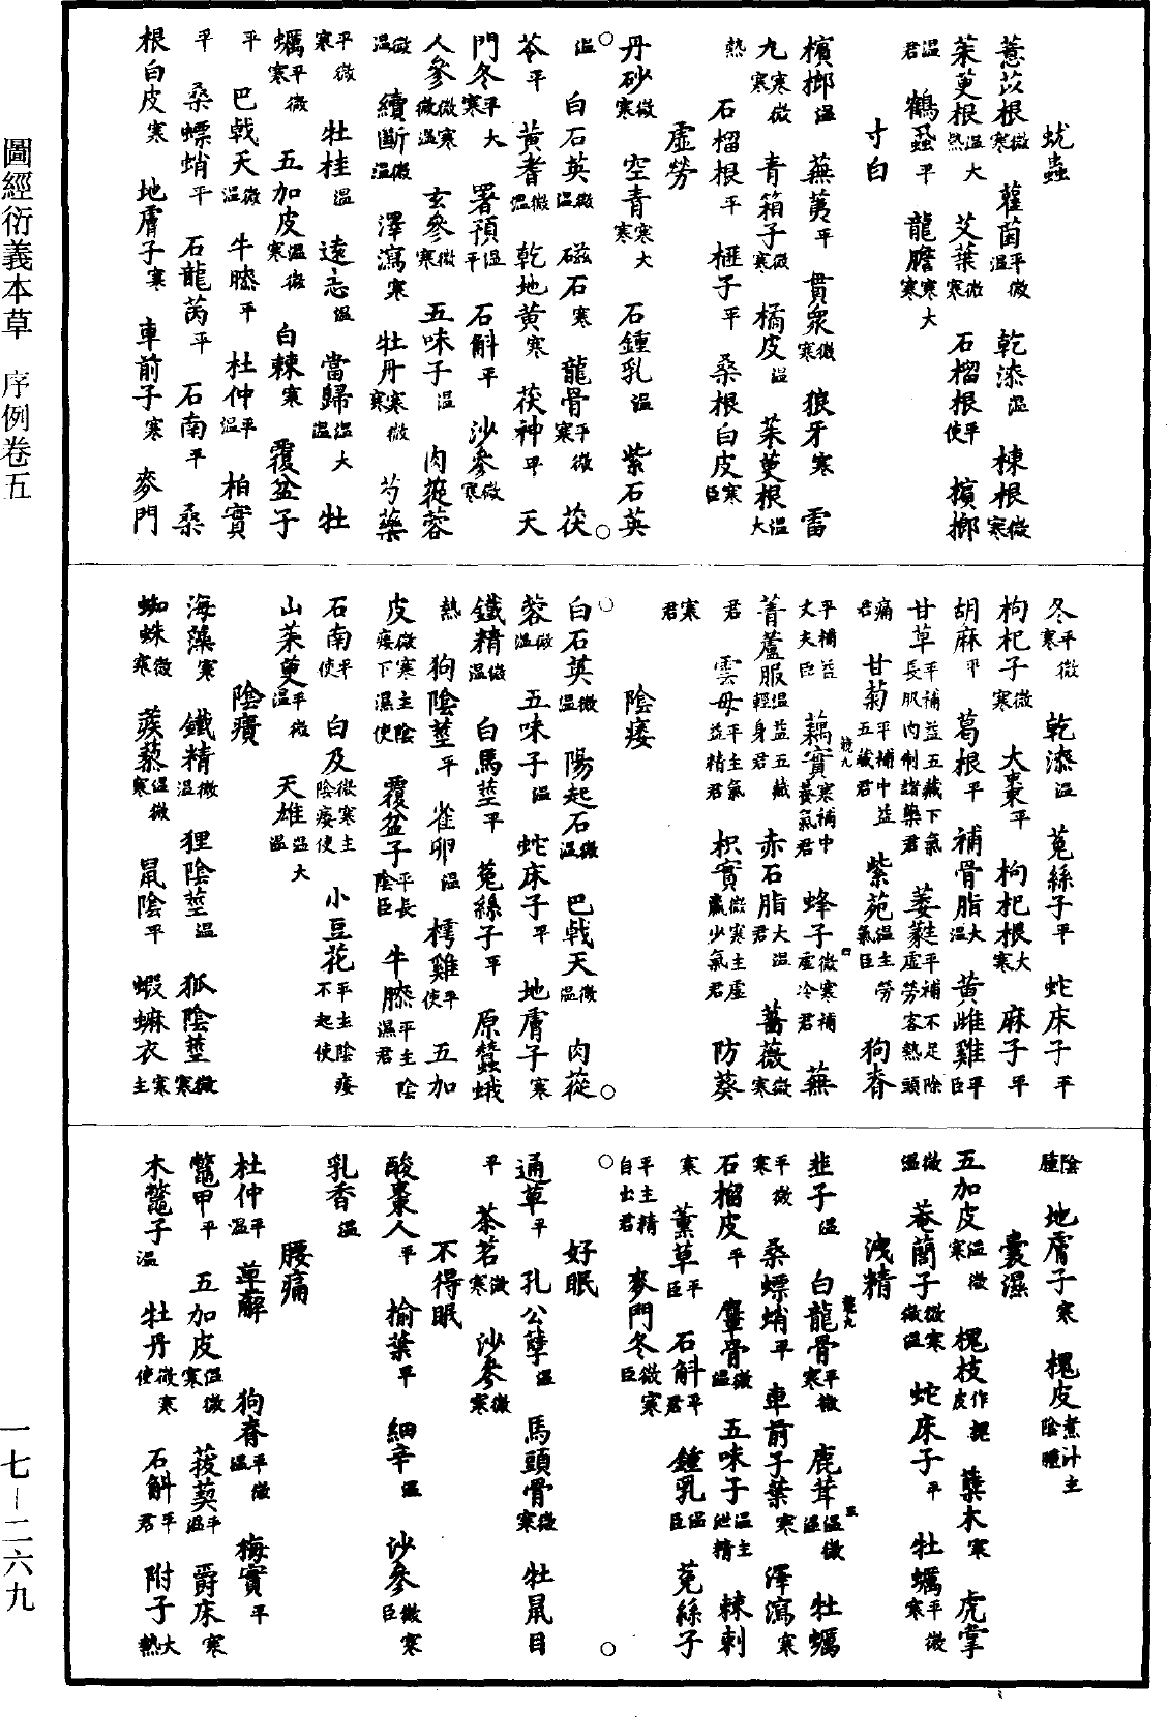 圖經衍義本草　序例卷五
一七-二六九
蚘蟲
薏苡根微寒　雚菌平微溫　乾漆溫　楝根微寒
茱萸根溫大熱　艾葉微寒　石榴根平使　檳榔
溫君　鶴蝨平　龍膽寒大寒
寸白
檳榔溫　蕪荑平　貫衆微寒　狼牙寒　雷
丸寒微寒　青箱子微寒　橘皮溫　茱萸根溫大
熱　石榴根平　榧子平　桑根白皮寒臣
虛勞
丹砂微寒　空青寒大寒　石鍾乳溫　紫石英
溫　白石英微溫　磁石寒　龍骨平微寒　茯
苓平　黃耆微溫　乾地黃寒　茯神平　天
門冬平大寒　署預溫平　石斛平　沙參微寒
人參微寒微溫　玄參微寒　五味子溫　肉蓯蓉
微溫　續斷微溫　澤瀉寒　牡丹寒微寒　芍藥
平微寒　牡桂溫　遠志溫　當歸溫大溫　牡
蠣平微寒　五加皮溫微寒　白棘寒　覆盆子
平　巴戟天微溫　牛膝平　杜仲平溫　柏實
平　桑螵蛸平　石龍芮平　石南平　桑
根白皮寒　地膚子寒　車前子寒　麥門
冬平微寒　乾漆溫　菟絲子平　蛇床子平
枸杞子微寒　大棗平　枸杞根大寒　麻子平
胡麻平　葛根平　補骨脂大溫　黃雌雞平臣
甘草平補益五藏下氣長肌肉制諸藥君　萎蕤主平補不足除虛勞客熱頭
痛君　甘菊平補中益五藏君　紫苑溫主勞氣臣　狗脊
平補益丈夫臣　藕實寒補中養氣君　蜂子微寒補虛冷君　蕪
菁蘆服溫益五藏輕身君　赤石脂大溫君　薔薇微寒
君　雲母平主氣益精君　枳實微寒主虛羸少氣君　防葵
寒君
陰痿
白石英微溫　陽起石微溫　巴戟天微溫　肉蓯
蓉微溫　五味子溫　蛇床子平　地膚子寒
鐵精微溫　白馬莖平　菟絲子平　原蠶蛾
熱　狗陰莖平　雀卵溫　樗雞平使　五加
皮微寒主陰痿下濕使　覆盆子平長陰臣　牛膝平主陰濕君
石南平使　白及微寒主陰痿使　小豆花平主陰痿不起使
山茱萸平微溫　天雄溫大溫
陰㿗
海藻寒　鐵精微溫　狸陰莖溫　狐陰莖微寒
蜘蛛微寒　蒺藜溫微寒　鼠陰平　蝦蟆衣寒主
陰腫　地膚子寒　槐皮煮汁主陰腫
囊濕
五加皮溫微寒　槐枝作皮　蘗木寒　虎掌
微溫　菴䕡子微寒微溫　蛇床子平　牡蠣平微寒
洩精
韭子溫　白龍骨平微寒　鹿茸溫微溫　牡蠣
平微寒　桑螵蛸平　車前子葉寒　澤瀉寒
石榴皮平　麞骨微溫　五味子溫主泄精　棘刺
寒　薰草平臣　石斛平君　鍾乳溫臣　菟絲子
平主精自出君　麥門冬微寒臣
好眠
通草平　孔公孽溫　馬頭骨微寒　牡鼠目
平　茶茗微寒　沙參微寒
不得眠
酸棗人平　榆葉平　細辛溫　沙參微寒臣
乳香溫
腰痛
杜仲平溫　萆薢　狗脊平微溫　梅實平
鼈甲平　五加皮溫微寒　菝葜平溫　爵床寒
木鼈子溫　牡丹微寒使　石斛平君　附子大熱